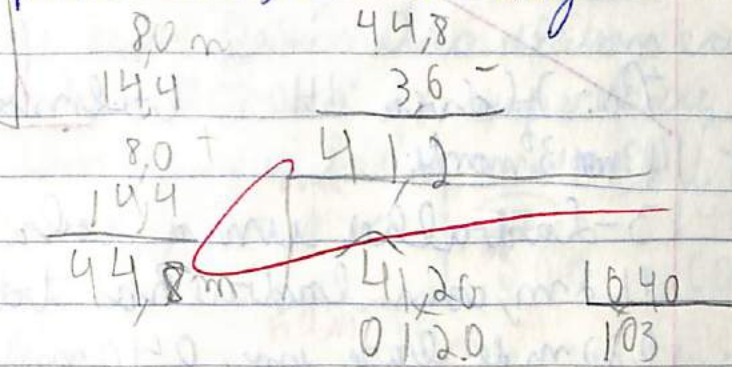 8,0 m
14,4
8,0 +
14,4
44,8 m
44,8
3,6 -
41,2
41,20 | 0,40
0120 103